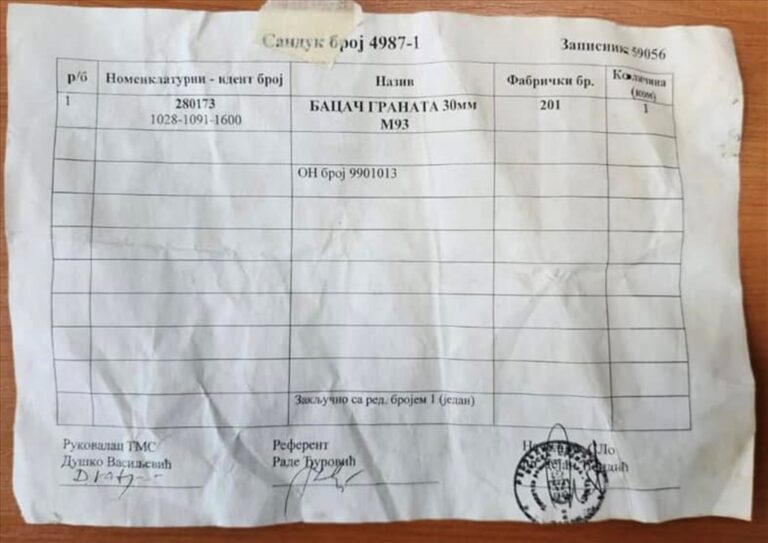 Сандук број 4987-1
Записник 59056
р/б Номенклатурни - идент број Назив Фабрички бр. Количина (ком)
1 280173 БАЦАЧ ГРАНАТА 30мм 201 1
1028-1091-1600 М93
ОН број 9901013
Закључно са ред. бројем 1 (један)
Руковалац ТМС Референт СЛо
Душко Васиљевић Раде Ђуровић